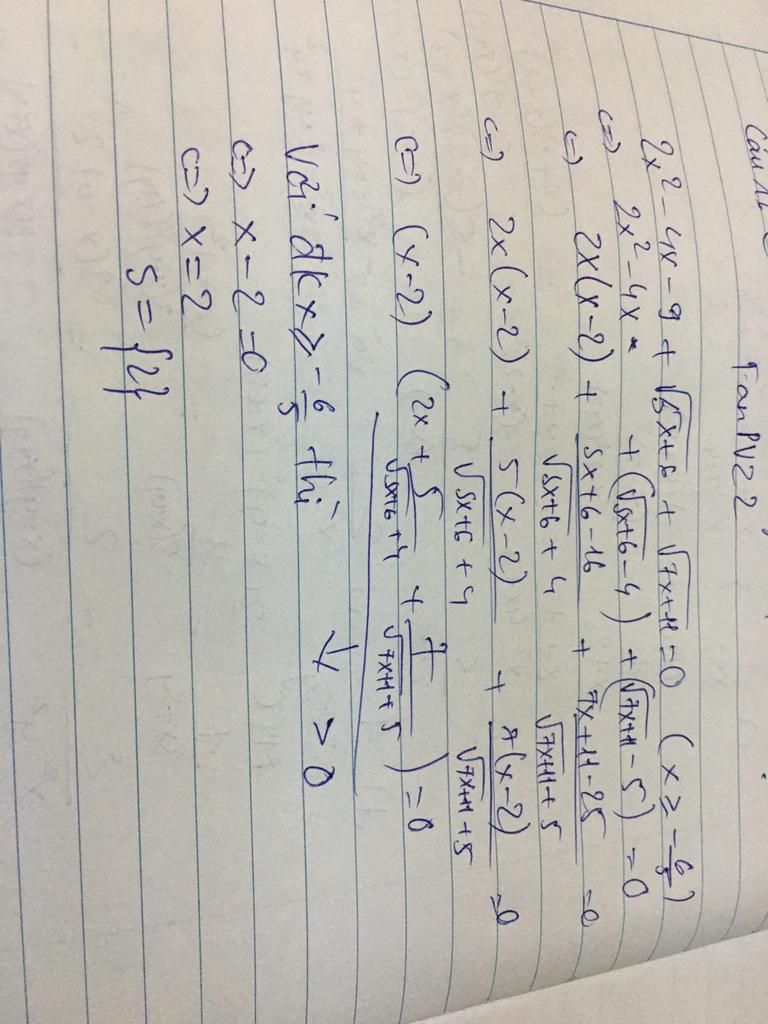 Câu
FanPVZ2
2x² - 4x - 9 + √5x+6 + √7x+11 = 0 (x ≥ -6/5)
<=> 2x² - 4x + (√5x+6 - 4) + (√7x+11 - 5) = 0
<=> 2x(x-2) + 5x+6-16/√5x+6 + 4 + 7x+11-25/√7x+11 + 5 = 0
<=> 2x(x-2) + 5(x-2)/√5x+6 + 4 + 7(x-2)/√7x+11 + 5 = 0
<=> (x-2) (2x + 5/√5x+6 + 4 + 7/√7x+11 + 5) = 0
Với đk x ≥ -6/5 thì ↓ > 0
<=> x - 2 = 0
<=> x = 2
S = {2}